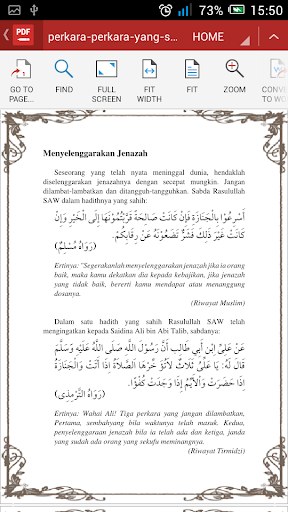 73% 15:50
PDF perkara-perkara-yang-s... HOME
GO TO PAGE... FIND FULL SCREEN FIT WIDTH FIT ZOOM CONV TO WO
Menyelenggarakan Jenazah
Seseorang yang telah nyata meninggal dunia, hendaklah
diselenggarakan jenazahnya dengan secepat mungkin. Jangan
dilambat-lambatkan dan ditangguh-tangguhkan. Sabda Rasulullah
SAW dalam hadithnya yang sahih:
أَسْرِعُوا بِالْجَنَازَةِ فَإِنْ كَانَتْ صَالِحَةً قَرَّبْتُمُوْنَهَا إِلَى الْخَيْرِ وَإِنْ
كَانَتْ غَيْرَ ذَلِكَ فَشَرٌّ تَضَعُوْنَهُ عَنْ رِقَابِكُمْ.
(رَوَاهُ مُسْلِمٌ)
Ertinya: "Segerakanlah menyelenggarakan jenazah jika ia orang
baik, maka kamu dekatkan dia kepada kebajikan, jika jenazah
yang tidak baik, bererti kamu mendapat atau menanggung
dosanya.
(Riwayat Muslim)
Dalam satu hadith yang sahih Rasulullah SAW telah
mengingatkan kepada Saidina Ali bin Abi Talib, sabdanya:
عَنْ عَلِيِّ ابْنِ أَبِي طَالِبٍ أَنَّ رَسُوْلَ اللَّهِ صَلَّى اللَّهُ عَلَيْهِ وَسَلَّمَ
قَالَ لَهُ: يَا عَلِيُّ ثَلَاثٌ لَاتُؤَخِّرْهَا الصَّلَاةُ إِذَا أَتَتْ وَالْجَنَازَةُ
إِذَا حَضَرَتْ وَالْأَيِّمُ إِذَا وَجَدَتْ كُفُؤًا.
(رَوَاهُ التِّرْمِذِي)
Ertinya: Wahai Ali! Tiga perkara yang jangan dilambatkan.
Pertama, sembahyang bila waktunya telah masuk. Kedua,
penyelenggaraan jenazah bila ia telah ada dan ketiga, janda
yang sudah ada orang yang sekufu meminangnya.
(Riwayat Tirmidzi)